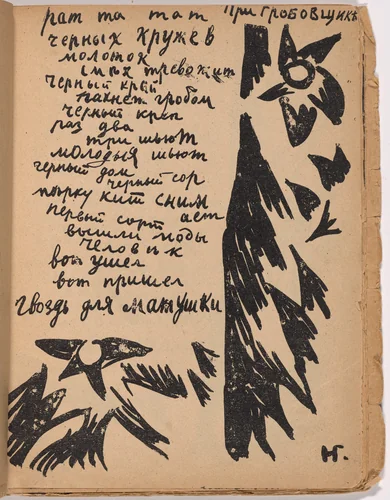 рат та тат
При гробовщикъ
черных кружев
молоток
смях тревожит
черный край
пахнет гробом
черный креп
раз два
три шьют
молодыя шьют
черный дом
черный сор
кит сним
первый сорт ает
вышли моды
человѣк
вот ушел
вот пришел
гвоздь для макушки
НГ.